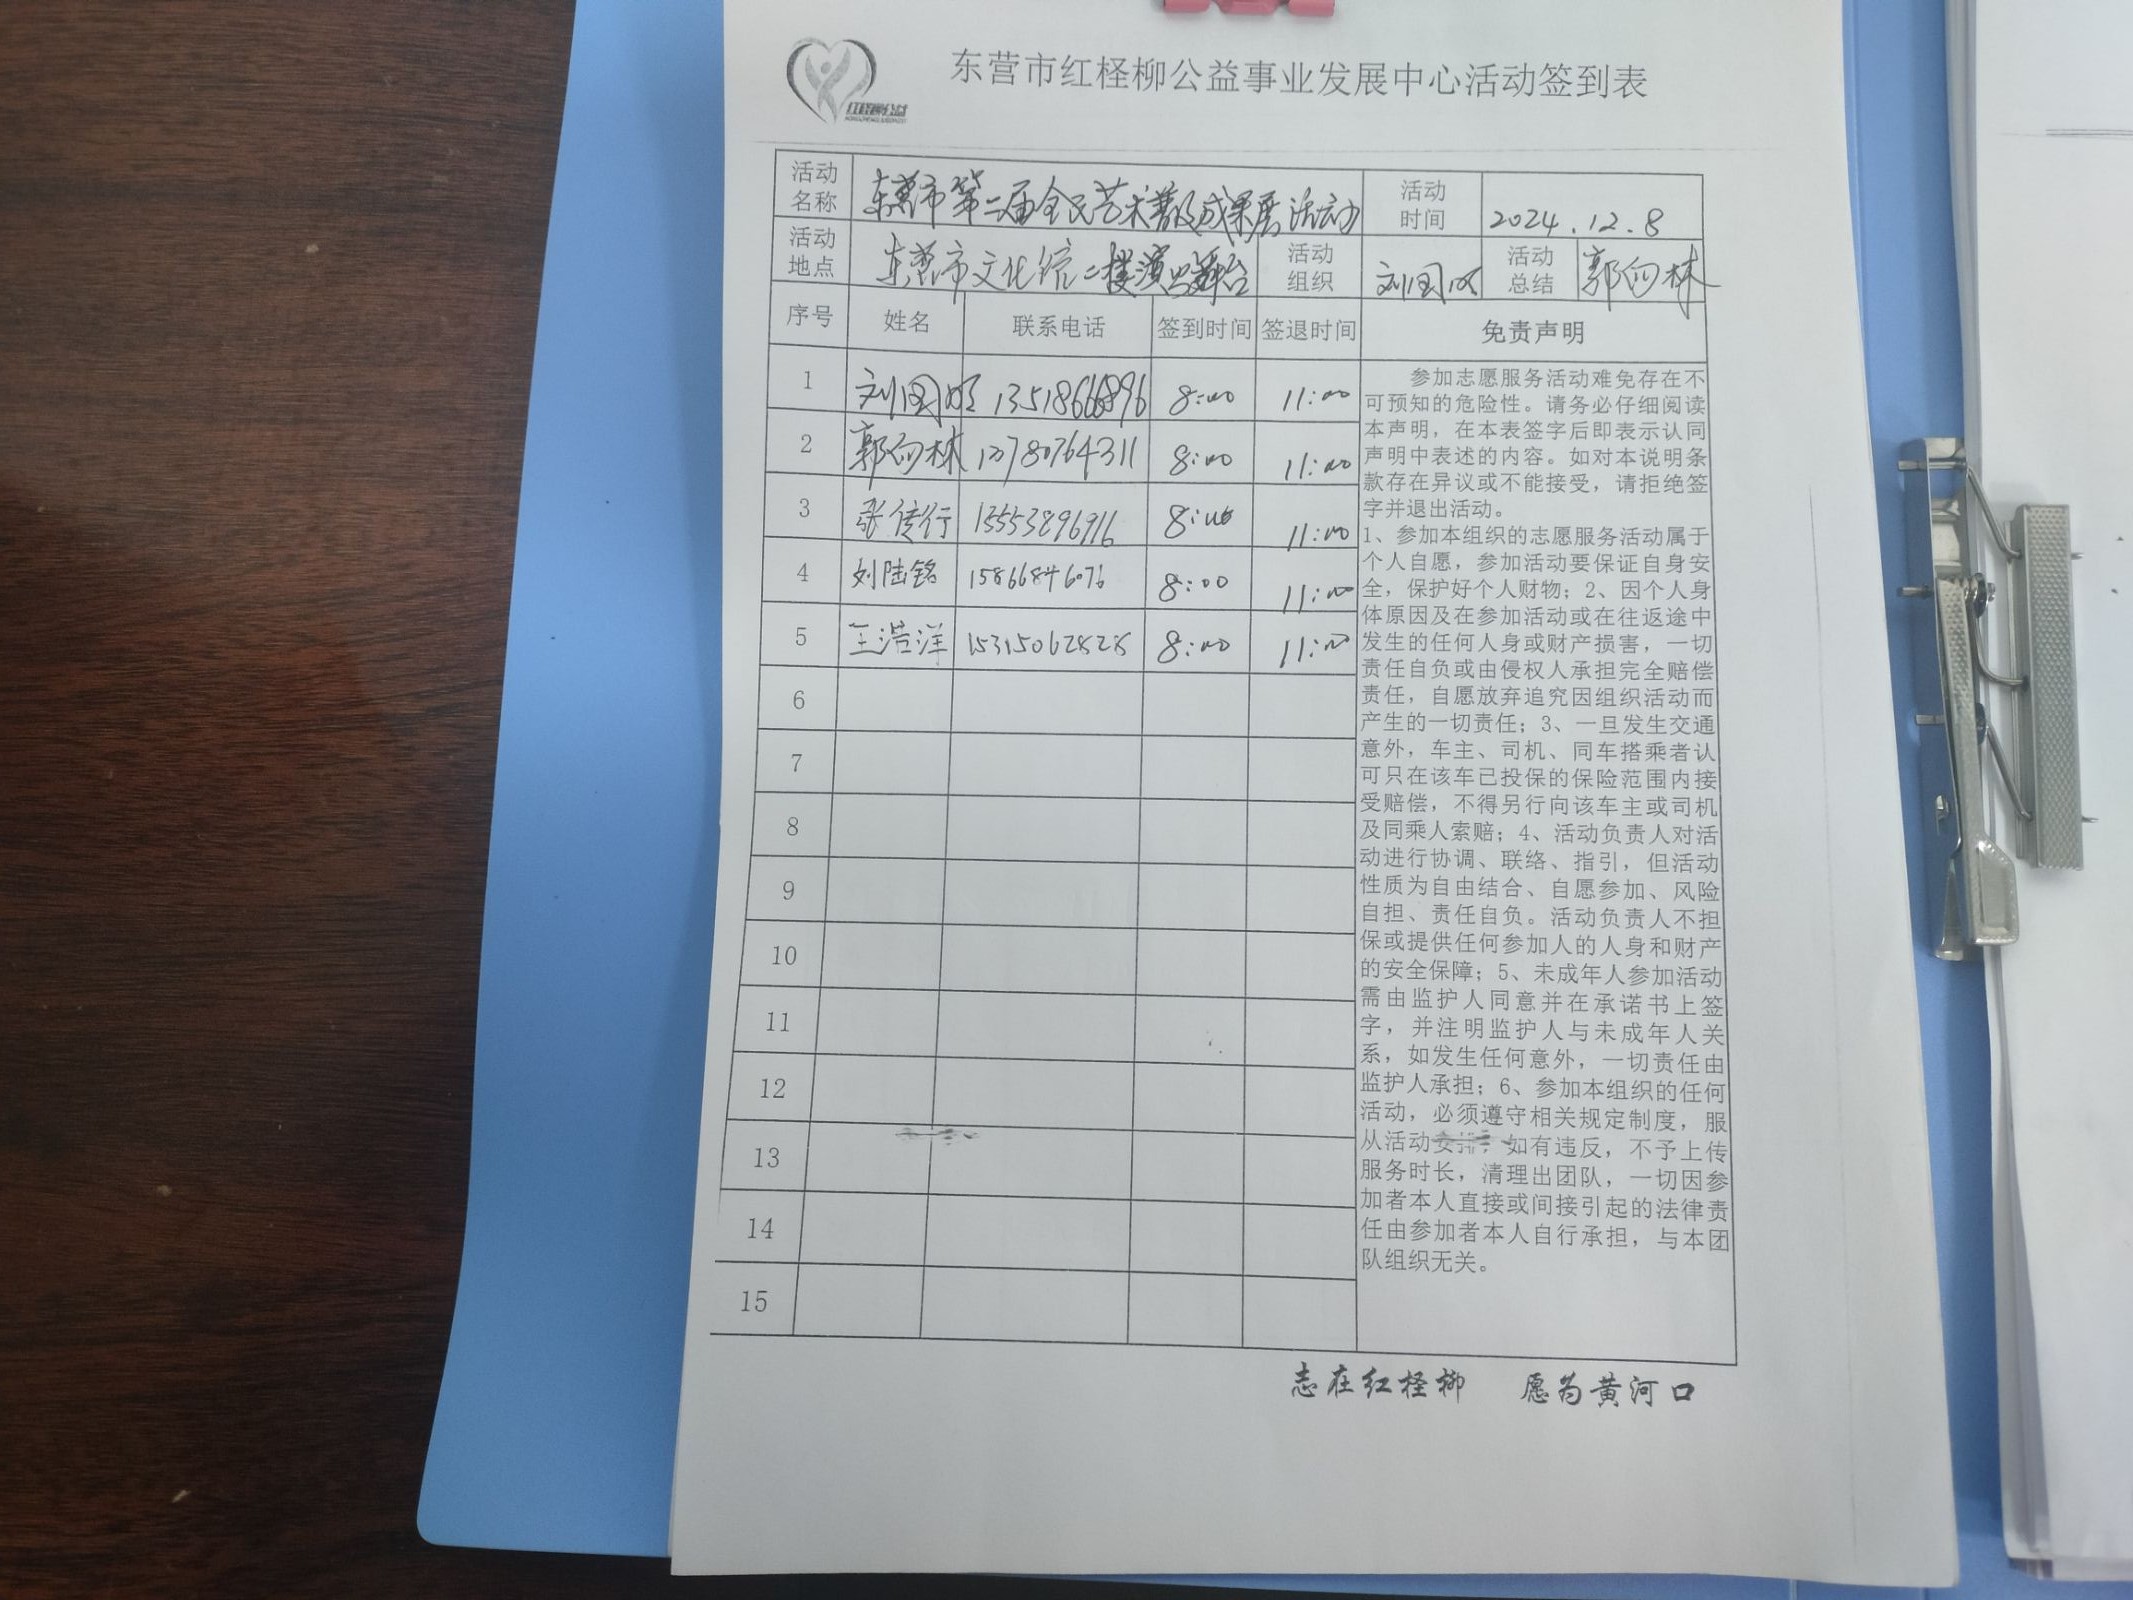 红柽柳公益
东营市红柽柳公益事业发展中心活动签到表
活动名称 东营市第二届全民艺术普及成果展活动 活动时间 2024.12.8
活动地点 东营市文化馆二楼演出舞台 活动组织 刘国明 活动总结 郭向林
序号 姓名 联系电话 签到时间 签退时间 免责声明
1 刘国明 8:00 11:00
2 郭向林 13780764311 8:00 11:00
3 张传行 15553896916 8:00 11:00
4 刘陆铭 15866846076 8:00 11:00
5 王浩洋 15315062828 8:00 11:00
6
7
8
9
10
11
12
13
14
15
参加志愿服务活动难免存在不
可预知的危险性。请务必仔细阅读
本声明，在本表签字后即表示认同
声明中表述的内容。如对本说明条
款存在异议或不能接受，请拒绝签
字并退出活动。
1、参加本组织的志愿服务活动属于
个人自愿，参加活动要保证自身安
全，保护好个人财物；2、因个人身
体原因及在参加活动或在往返途中
发生的任何人身或财产损害，一切
责任自负或由侵权人承担完全赔偿
责任，自愿放弃追究因组织活动而
产生的一切责任；3、一旦发生交通
意外，车主、司机、同车搭乘者认
可只在该车已投保的保险范围内接
受赔偿，不得另行向该车主或司机
及同乘人索赔；4、活动负责人对活
动进行协调、联络、指引，但活动
性质为自由结合、自愿参加、风险
自担、责任自负。活动负责人不担
保或提供任何参加人的人身和财产
的安全保障；5、未成年人参加活动
需由监护人同意并在承诺书上签
字，并注明监护人与未成年人关
系，如发生任何意外，一切责任由
监护人承担；6、参加本组织的任何
活动，必须遵守相关规定制度，服
从活动安排，如有违反，不予上传
服务时长，清理出团队，一切因参
加者本人直接或间接引起的法律责
任由参加者本人自行承担，与本团
队组织无关。
志在红柽柳 愿为黄河口